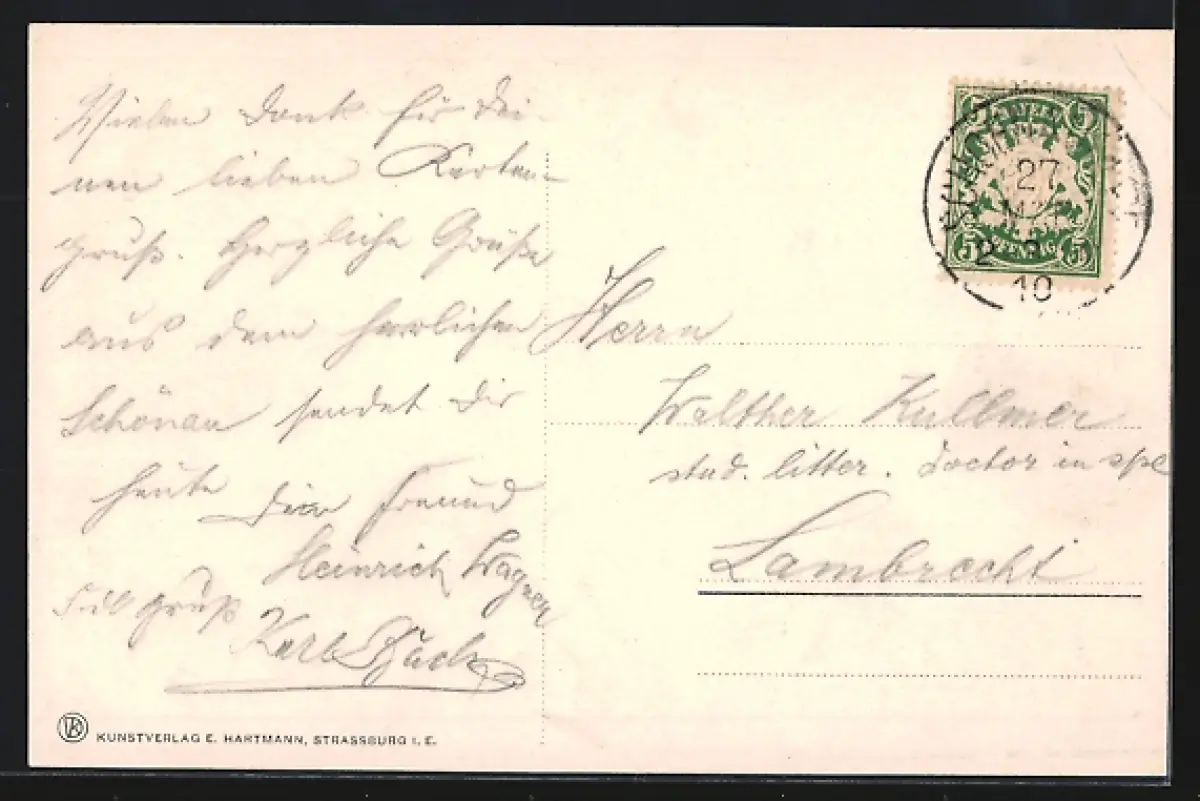 Vielen Dank für Dei-
nen lieben Karten-
gruß. Herzliche Grüße
aus dem herrlichen
Schönau sendet Dir
heute Dein Freund
Heinrich Wagner
Gruß
Karl
KUNSTVERLAG E. HARTMANN, STRASSBURG I. E.
BAYERN
5 5
PFENNIG
5 5
27
10
Herrn
Walther Kullmer
stud. litter. Doctor in spe
Lambrecht